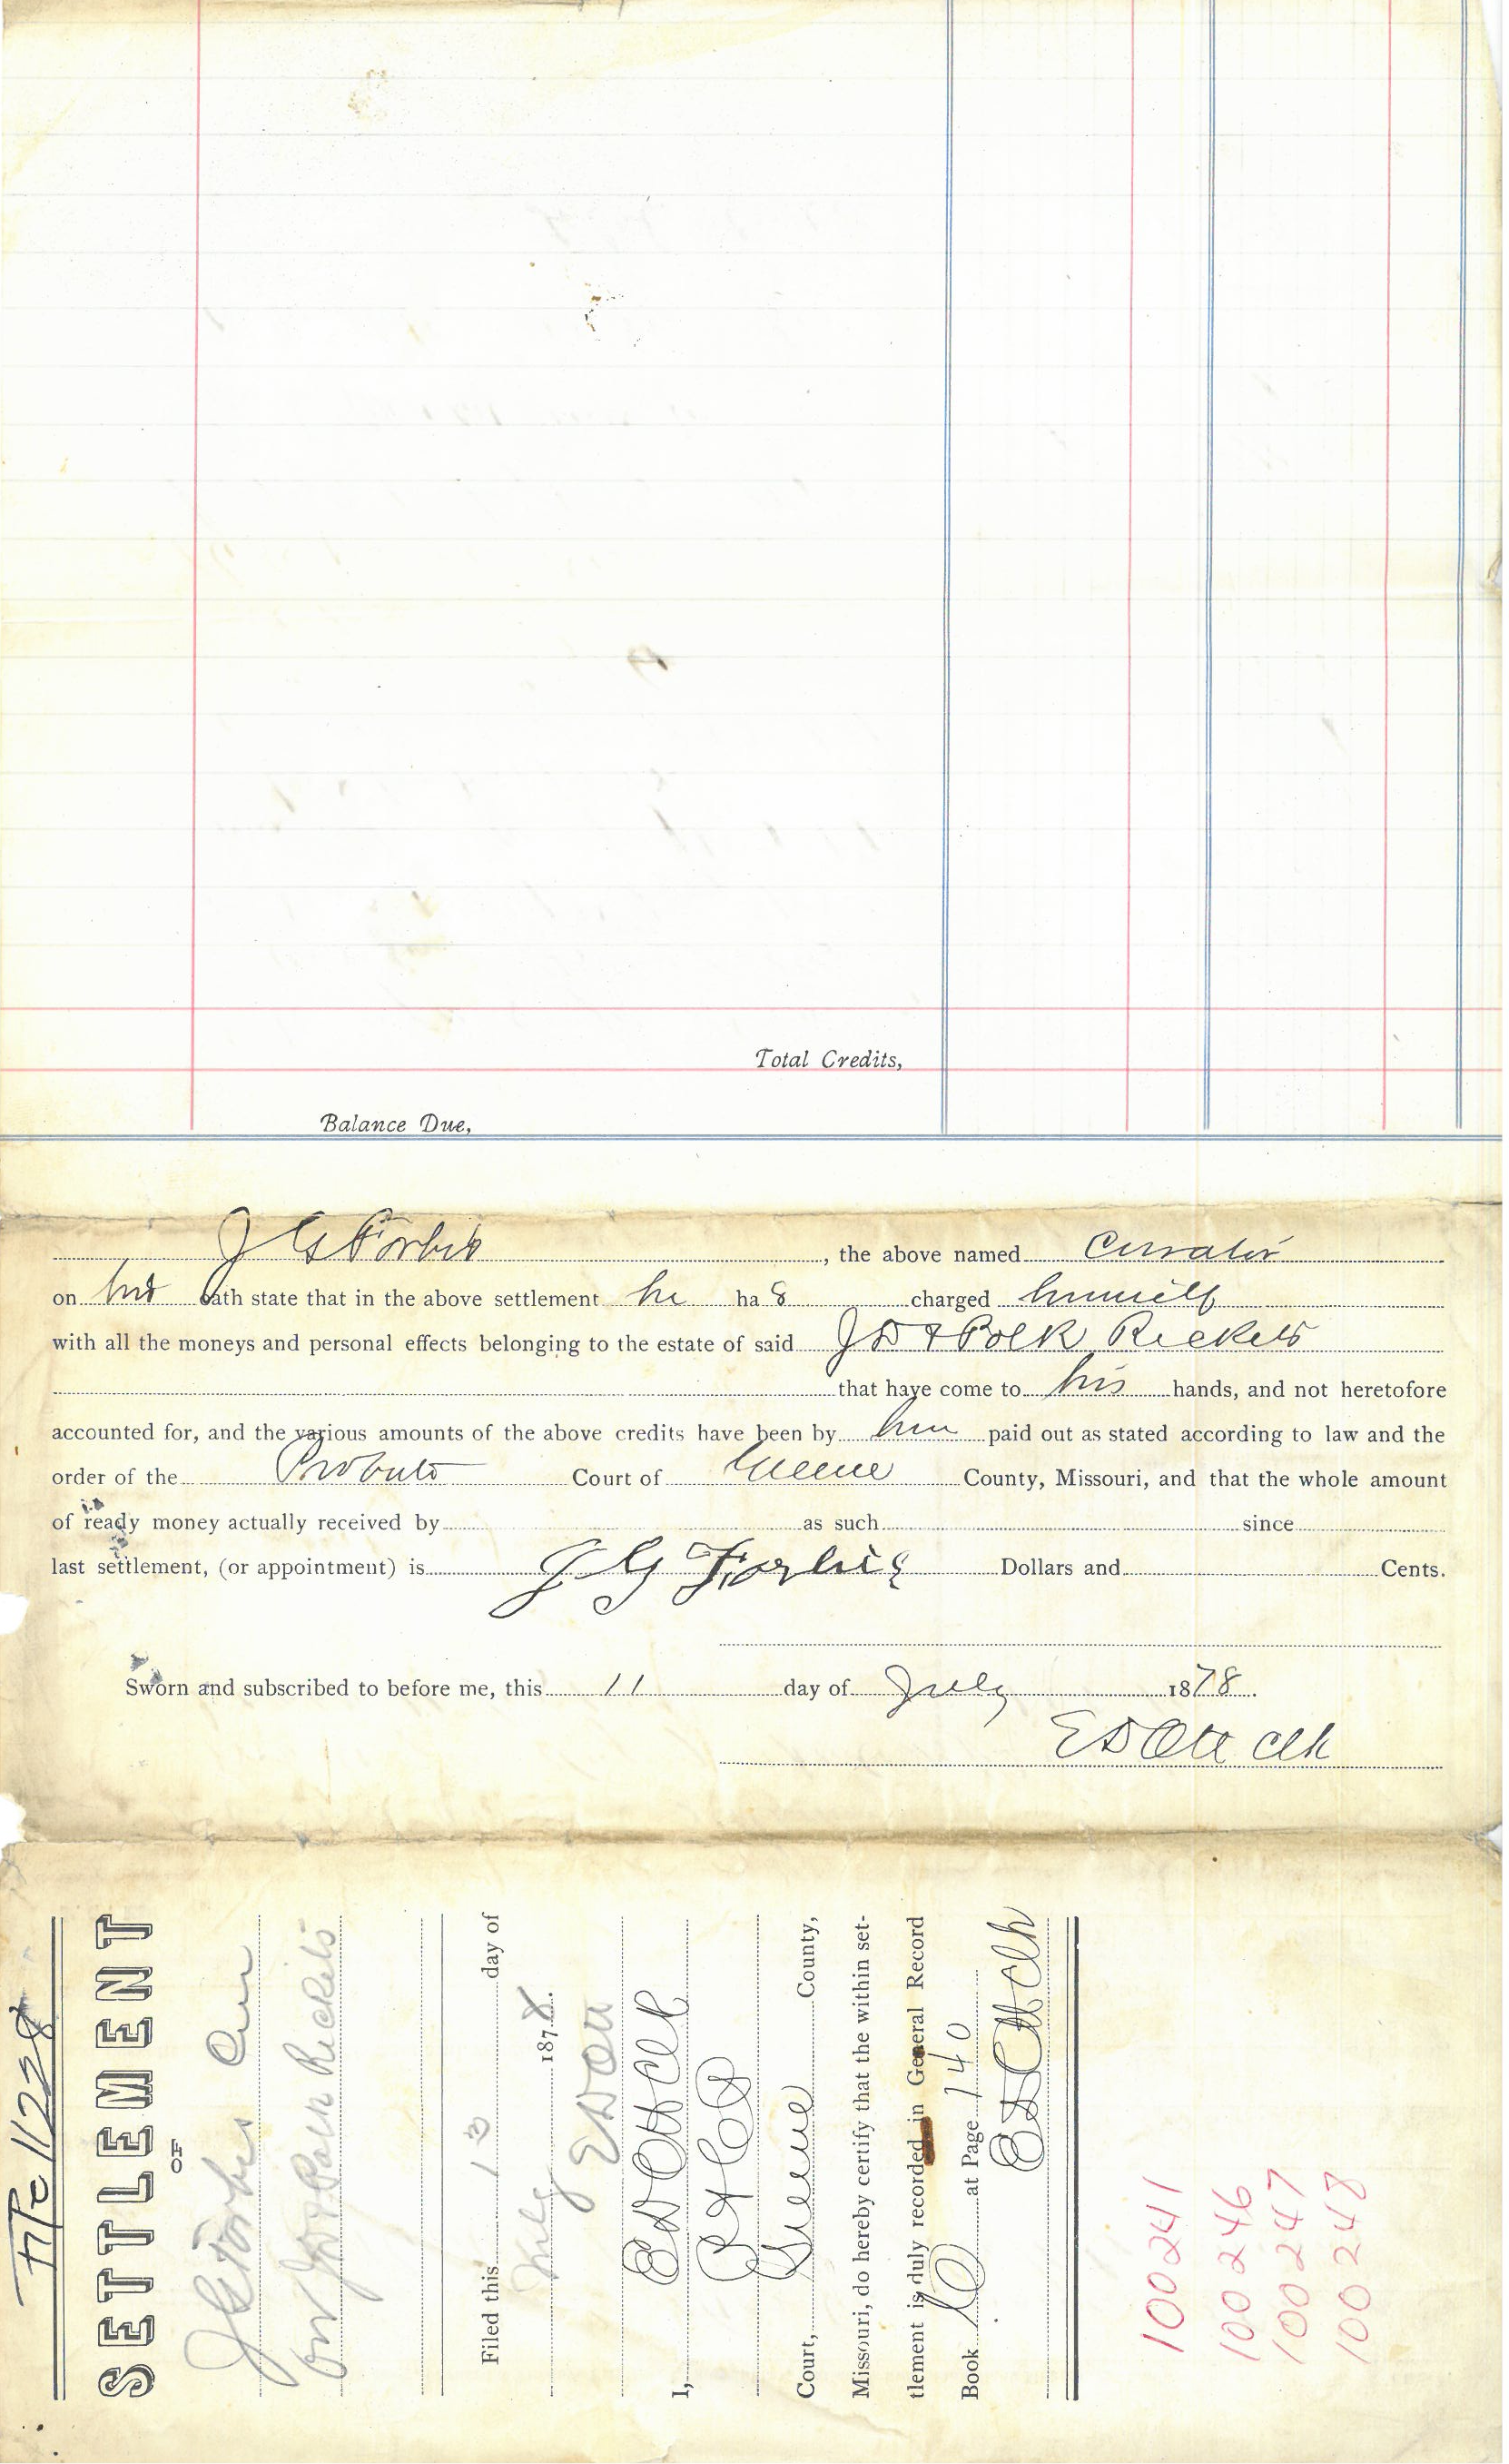 Total Credits,
Balance Due,
J G Forbis, the above named Curator
on his oath state that in the above settlement he has charged himself
with all the moneys and personal effects belonging to the estate of said J D & Polk Rickets
that have come to his hands, and not heretofore
accounted for, and the various amounts of the above credits have been by him paid out as stated according to law and the
order of the Probate Court of Greene County, Missouri, and that the whole amount
of ready money actually received by as such since
last settlement, (or appointment) is J G Forbis Dollars and Cents.
Sworn and subscribed to before me, this 11 day of July 1878.
E D Ott Clk
File 11228
SETTLEMENT
OF
J G Forbis Cur
J D & Polk Rickets
Filed this 13 day of
July 1878.
E D Ott
E D Ott Clk
I,
Greene
Court, County,
Missouri, do hereby certify that the within set-
tlement is duly recorded in General Record
Book D at Page 140
E D Ott Clk
100241
100246
100247
100248